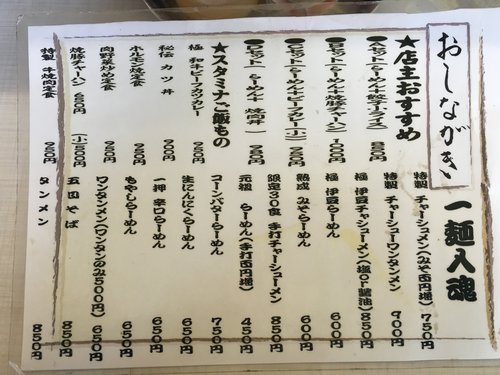 おしながき
一麺入魂
★店主おすすめ
Aセット(らーめん+餃子+ライス) 850円
Bセット(らーめん+焼豚チャーハン) 1000円
Cセット(らーめん+ビーフカレー(小)) 700円
Dセット(らーめん+焼肉丼) 750円
★スタミナご飯もの
極 和牛ビーフカツカレー 900円
秘伝 カツ丼 700円
ホルモン焼定食 750円
肉野菜炒め定食 700円
焼豚チャーハン 650円 (小)500円
特製 牛焼肉定食 750円
特製 チャーシューメン(みそ百円増) 750円
特製 チャーシューワンタンメン 900円
極 伊豆チャーシューメン(塩or醤油) 850円
極 伊豆らーめん 600円
熟成 みそらーめん 600円
限定30食 手打チャーシューメン 850円
元祖 らーめん(手打百円増) 450円
コーンバターらーめん 750円
生にんにくらーめん 650円
一押 辛口らーめん 650円
もやしらーめん 650円
ワンタンメン(ワンタンのみ500円) 650円
五目そば 850円
タンメン 850円